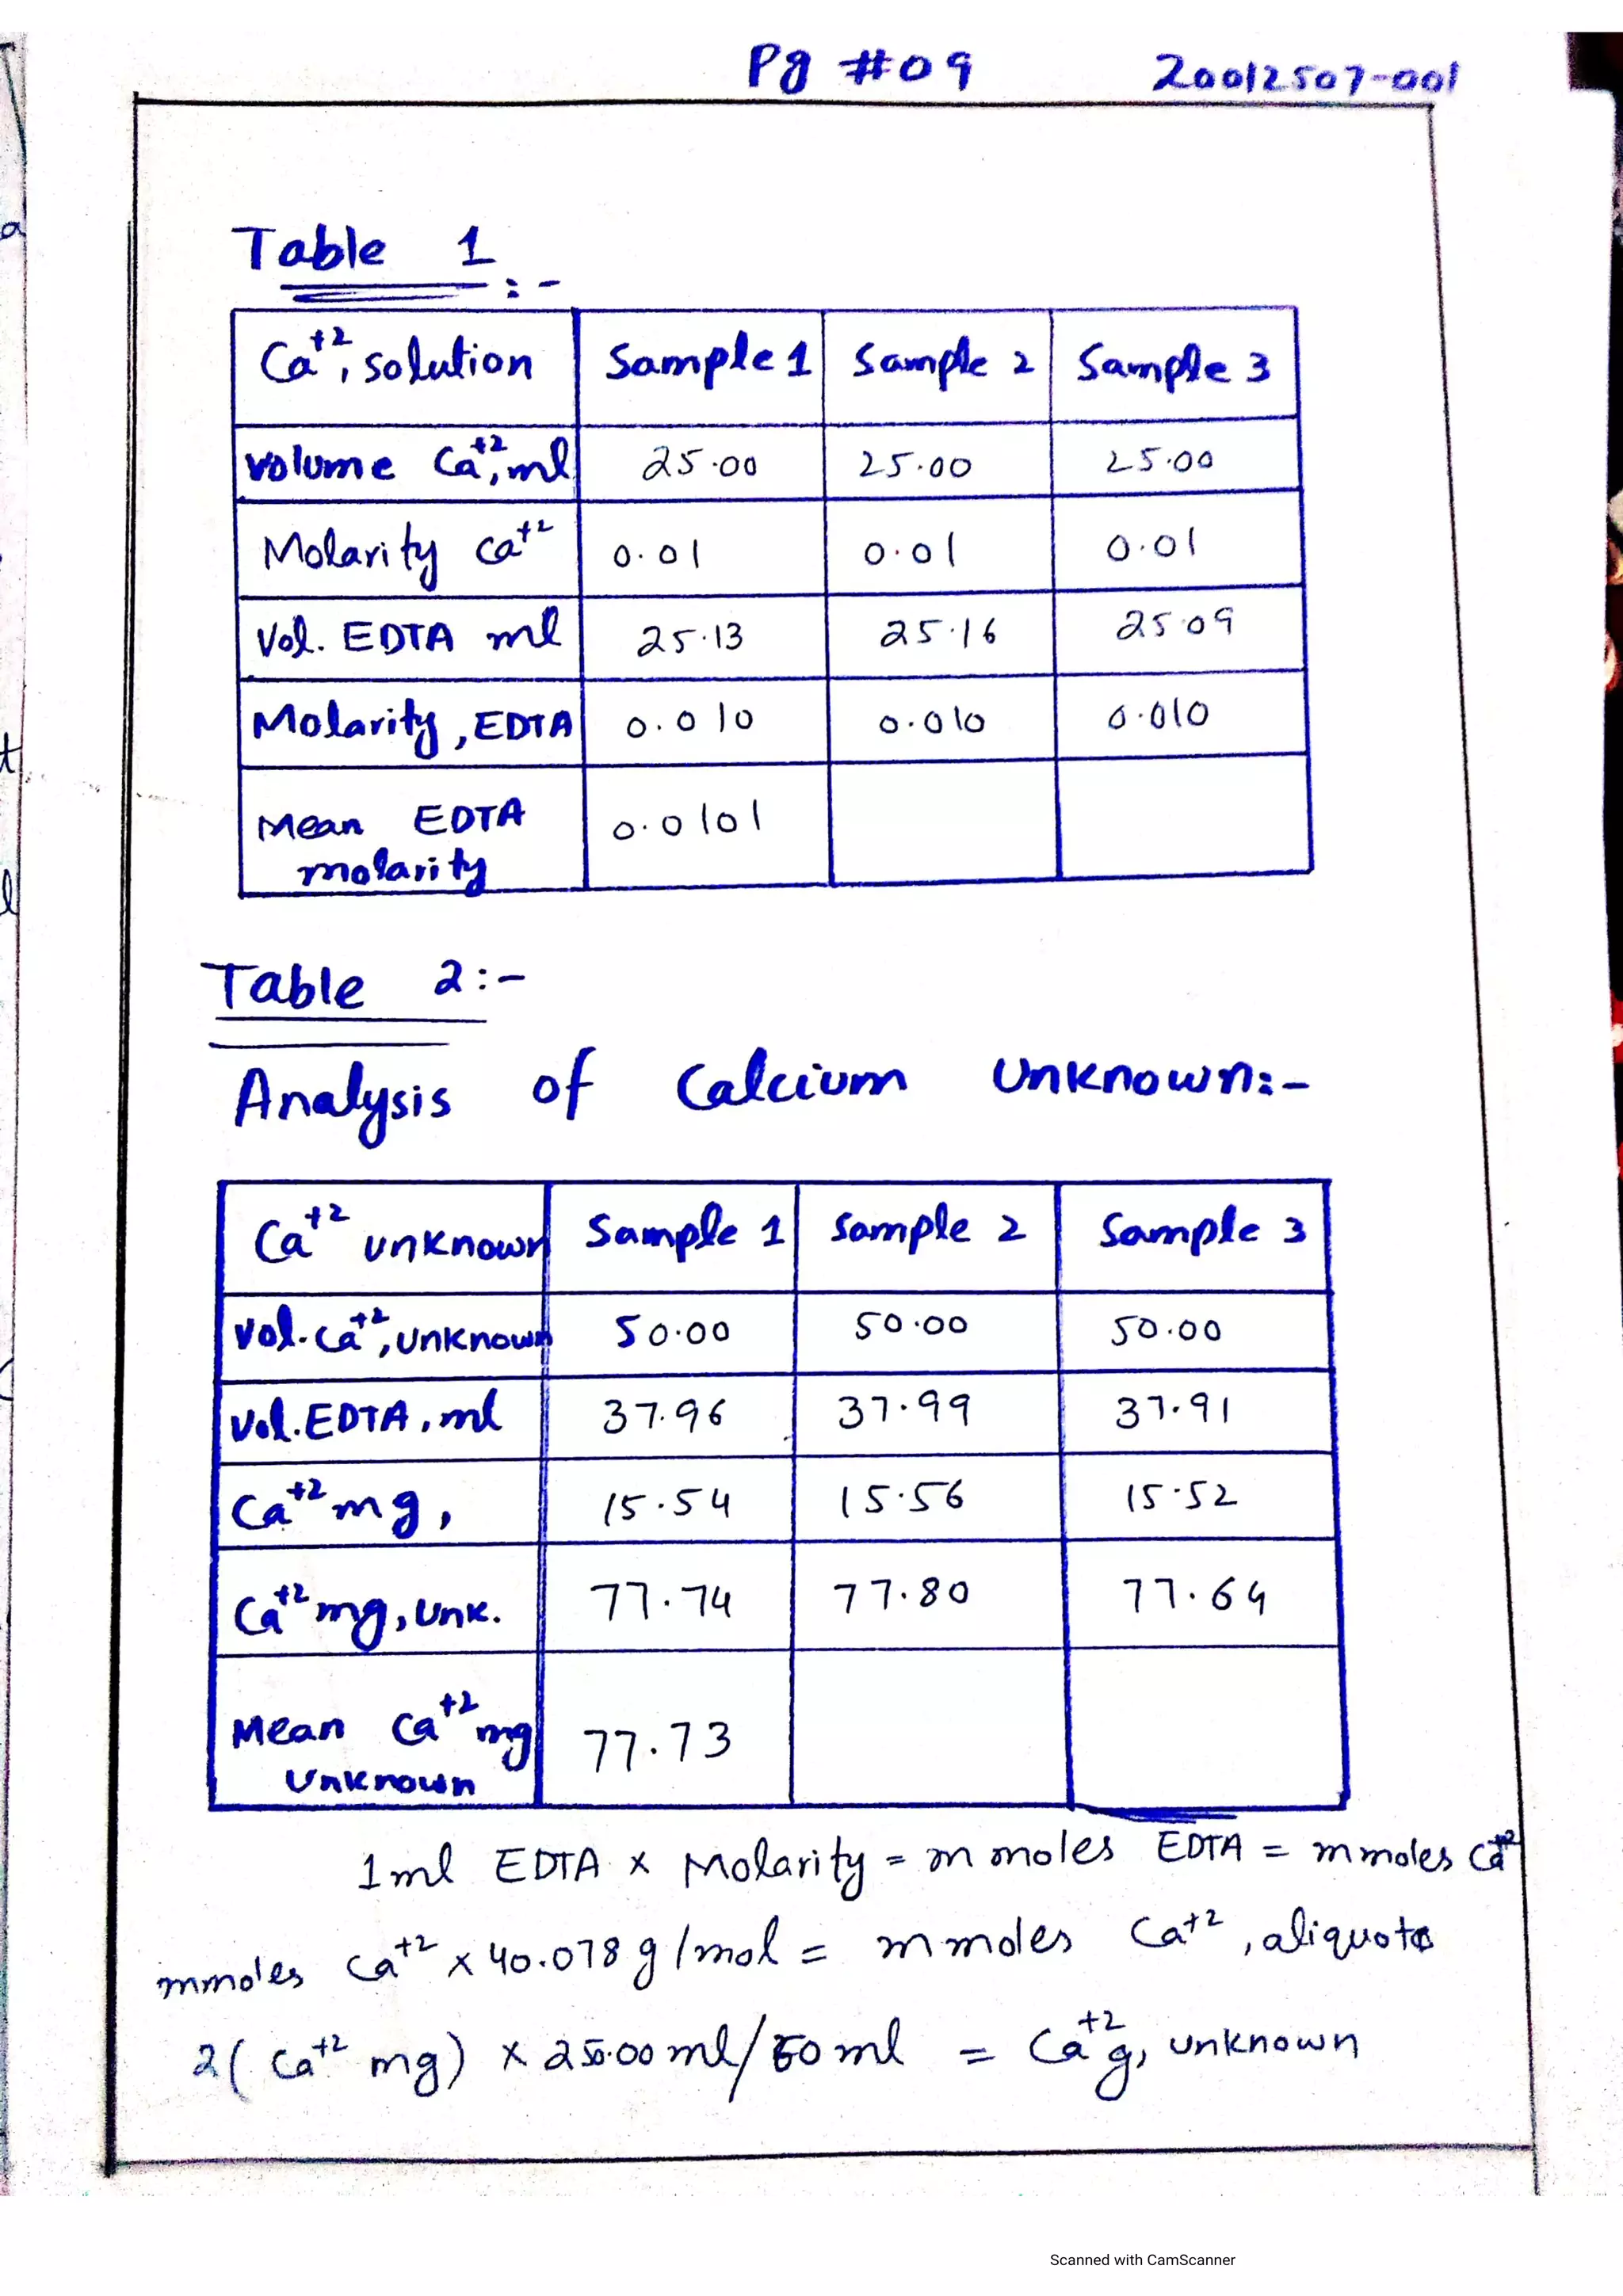 Pg #09 20012507-001
Table 1 :-
Ca+2, solution Sample 1 Sample 2 Sample 3
volume Ca+2, ml 25.00 25.00 25.00
Molarity Ca+2 0.01 0.01 0.01
Vol. EDTA ml 25.13 25.16 25.09
Molarity, EDTA 0.010 0.010 0.010
Mean EDTA molarity 0.0101
Table 2:-
Analysis of Calcium Unknown:-
Ca+2 unknown Sample 1 Sample 2 Sample 3
Vol. Ca+2, unknown 50.00 50.00 50.00
Vol. EDTA, ml 37.96 37.99 37.91
Ca+2 mg, 15.54 15.56 15.52
Ca+2 mg, Unk. 77.74 77.80 77.64
Mean Ca+2 mg Unknown 77.73
1ml EDTA x Molarity = m moles EDTA = mmoles Ca+2
mmoles Ca+2 x 40.078 g/mol = m moles Ca+2, aliquots
2( Ca+2 mg) x 250.00 ml/50 ml = Ca+2 g, unknown
Scanned with CamScanner